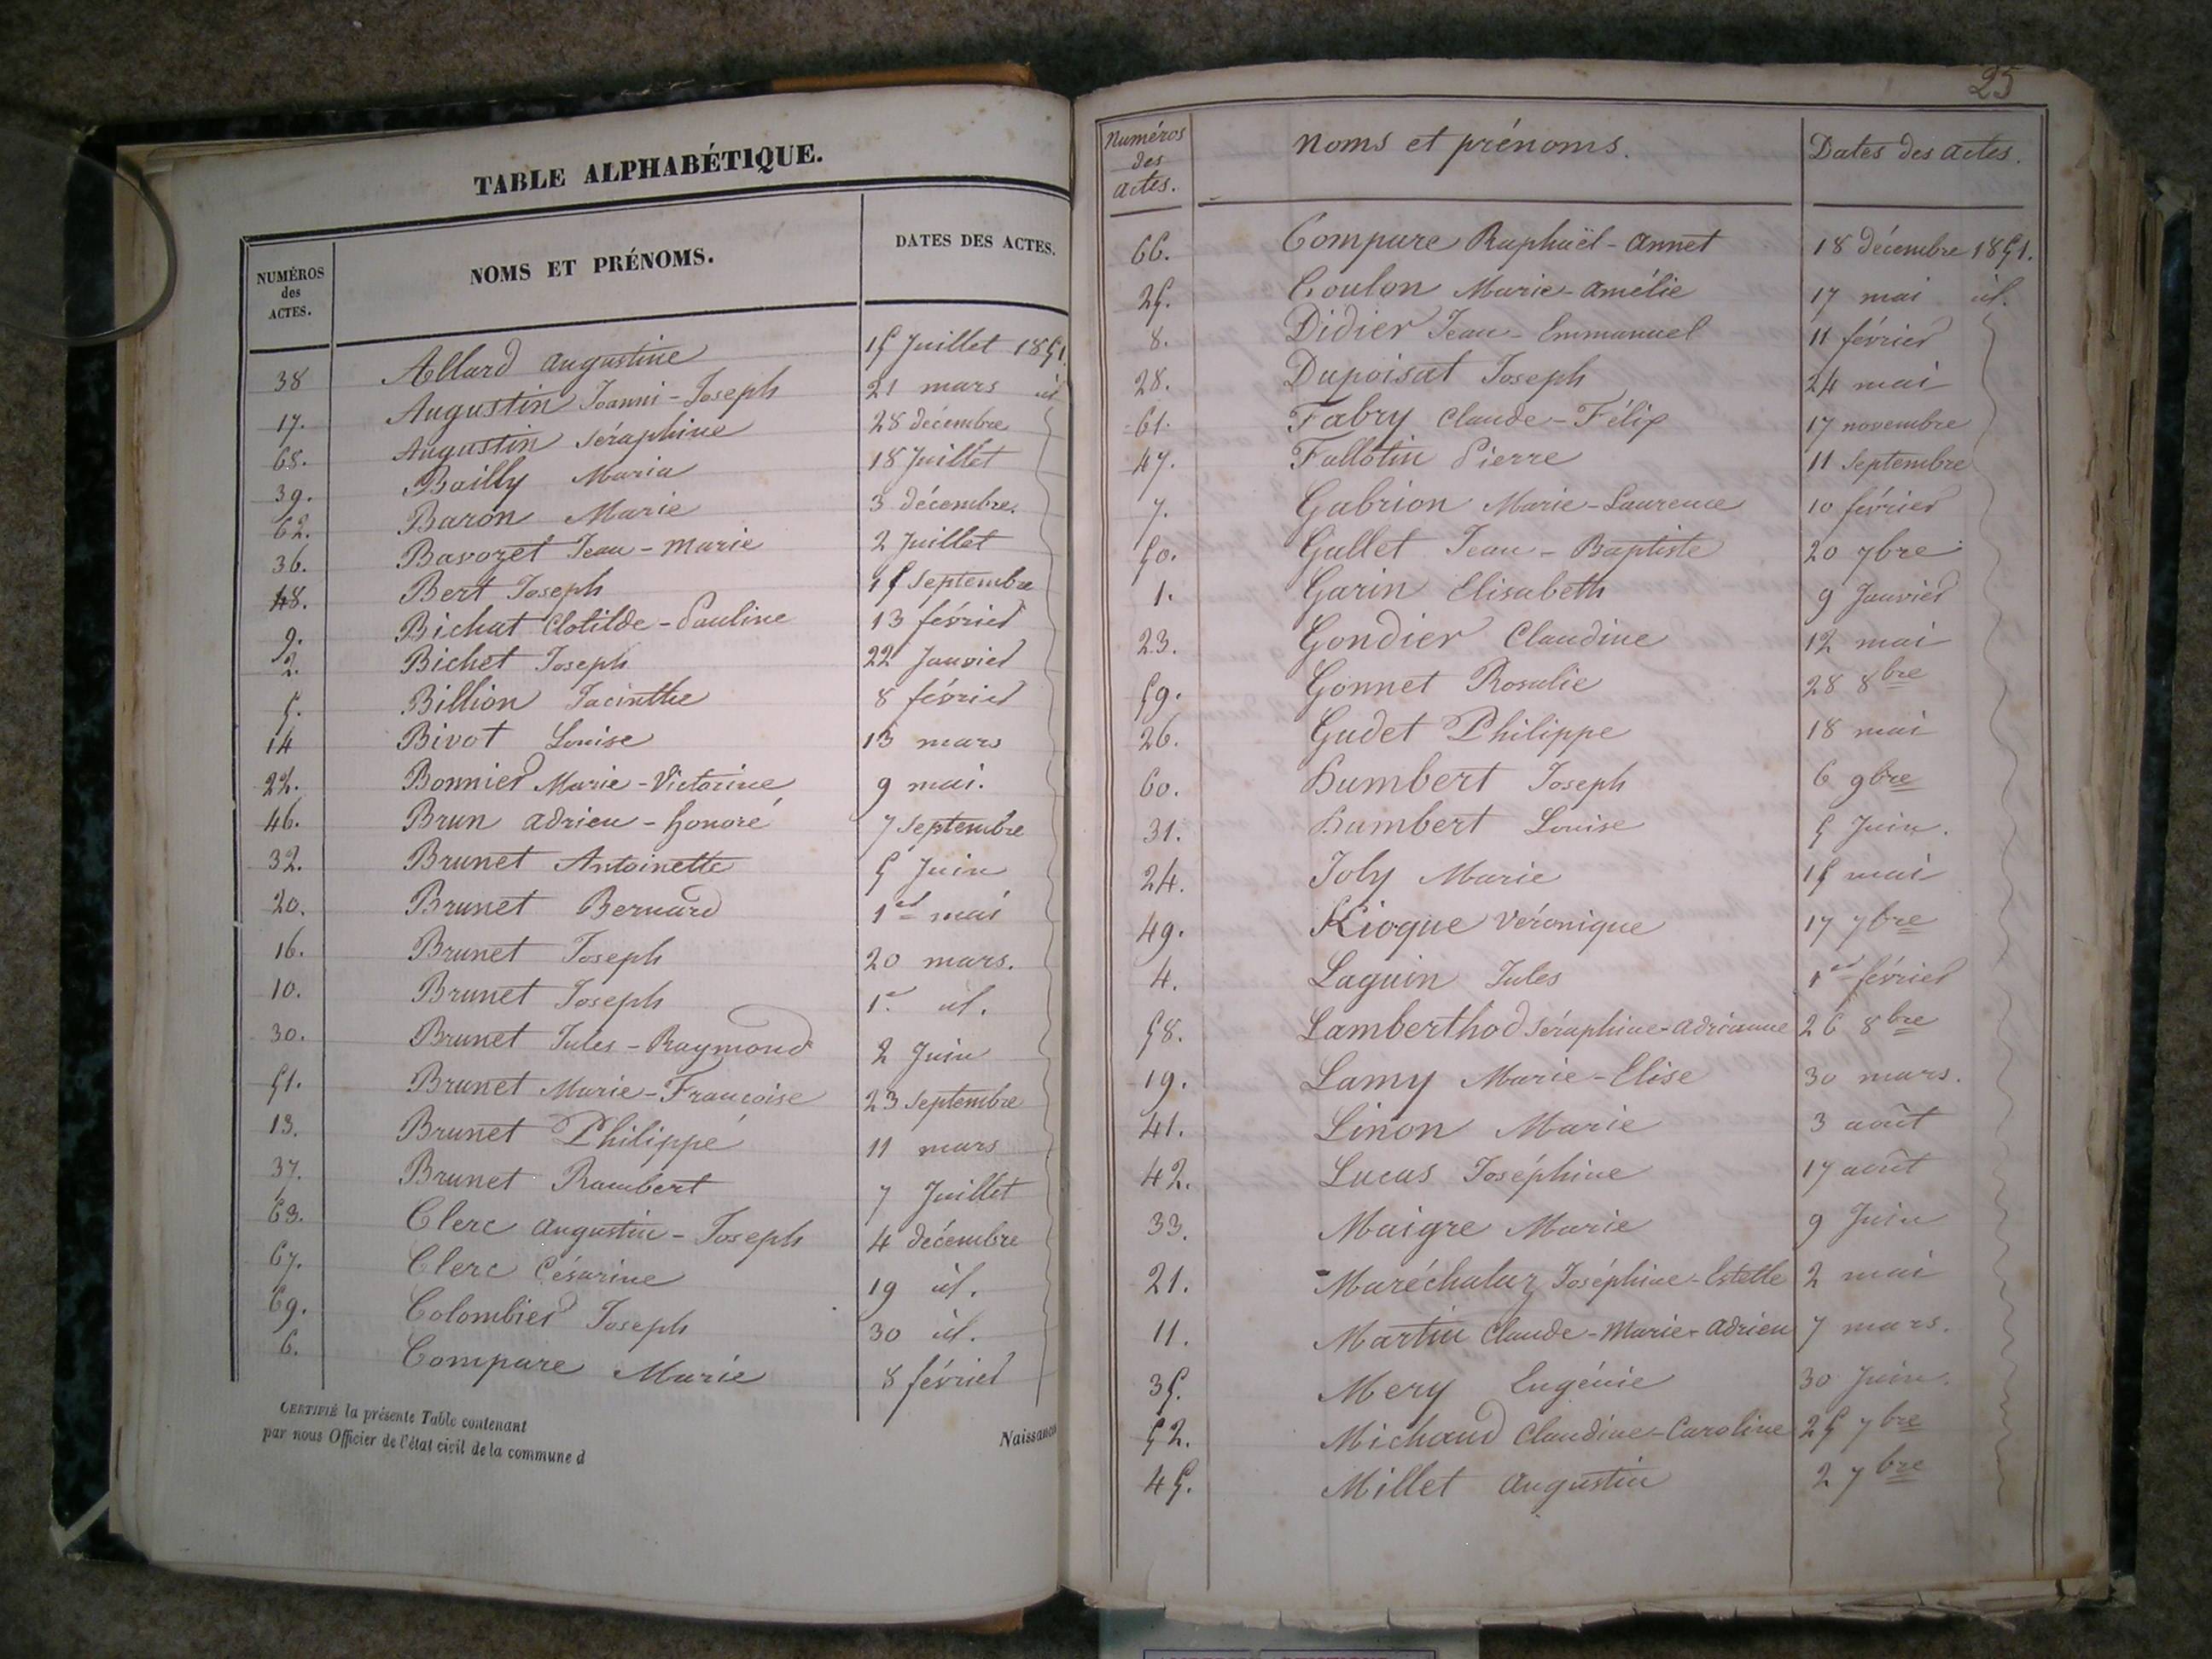 TABLE ALPHABÉTIQUE.
NUMÉROS des ACTES. NOMS ET PRÉNOMS. DATES DES ACTES.
38 Allard Augustine 15 Juillet 1851.
17. Augustin Joanni-Joseph 21 mars id
68. Augustin Séraphine 28 décembre
39. Bailly Maria 18 Juillet
62. Baron Marie 3 décembre.
36. Bavozet Jean-Marie 2 Juillet
48. Bert Joseph 15 Septembre
9. Bichat Clotilde-Pauline 13 février
2. Bichet Joseph 22 Janvier
5. Billion Jacinthe 8 février
14 Bivot Louise 13 mars
22. Bonnier Marie-Victorine 9 mai.
46. Brun Adrien-honoré 7 Septembre
32. Brunet Antoinette 5 Juin
20. Brunet Bernard 1er mai
16. Brunet Joseph 20 mars.
10. Brunet Joseph 1er id.
30. Brunet Jules-Raymond 2 Juin
51. Brunet Marie-Francoise 23 Septembre
13. Brunet Philippe 11 mars
37. Brunet Rambert 7 Juillet
63. Clerc Augustin-Joseph 4 décembre
67. Clerc Césarine 19 id.
69. Colombier Joseph 30 id.
6. Compare Marie 8 février
CERTIFIÉ la présente Table contenant
par nous Officier de l'état civil de la commune d
Naissances
25
Numéros des actes. Noms et prénoms. Dates des actes.
66. Compare Raphaël-Annet 18 décembre 1851.
25. Coulon Marie-Amélie 17 mai id.
8. Didier Jean-Emmanuel 11 février
28. Dupoisat Joseph 24 mai
61. Fabry Claude-Félix 17 novembre
47. Fallotin Pierre 11 Septembre
7. Gabrion Marie-Laurence 10 février
50. Gallet Jean-Baptiste 20 7bre
1. Garin Elisabeth 9 Janvier
23. Gondier Claudine 12 mai
59. Gonnet Rosalie 28 8bre
26. Gudet Philippe 18 mai
60. Humbert Joseph 6 9bre
31. Humbert Louise 5 Juin.
24. Joly Marie 15 mai
49. Kioque Véronique 17 7bre
4. Laguin Jules 1er février
58. Lamberthod Séraphine-Adrianne 26 8bre
19. Lamy Marie-Elise 30 mars.
41. Linon Marie 3 août
42. Lucas Joséphine 17 août
33. Maigre Marie 9 Juin
21. Maréchalaz Joséphine-Estelle 2 mai
11. Martin Claude-Marie-Adrien 7 mars.
35. Mery Eugénie 30 Juin.
52. Michaud Claudine-Caroline 25 7bre
45. Millet Augustin 2 7bre